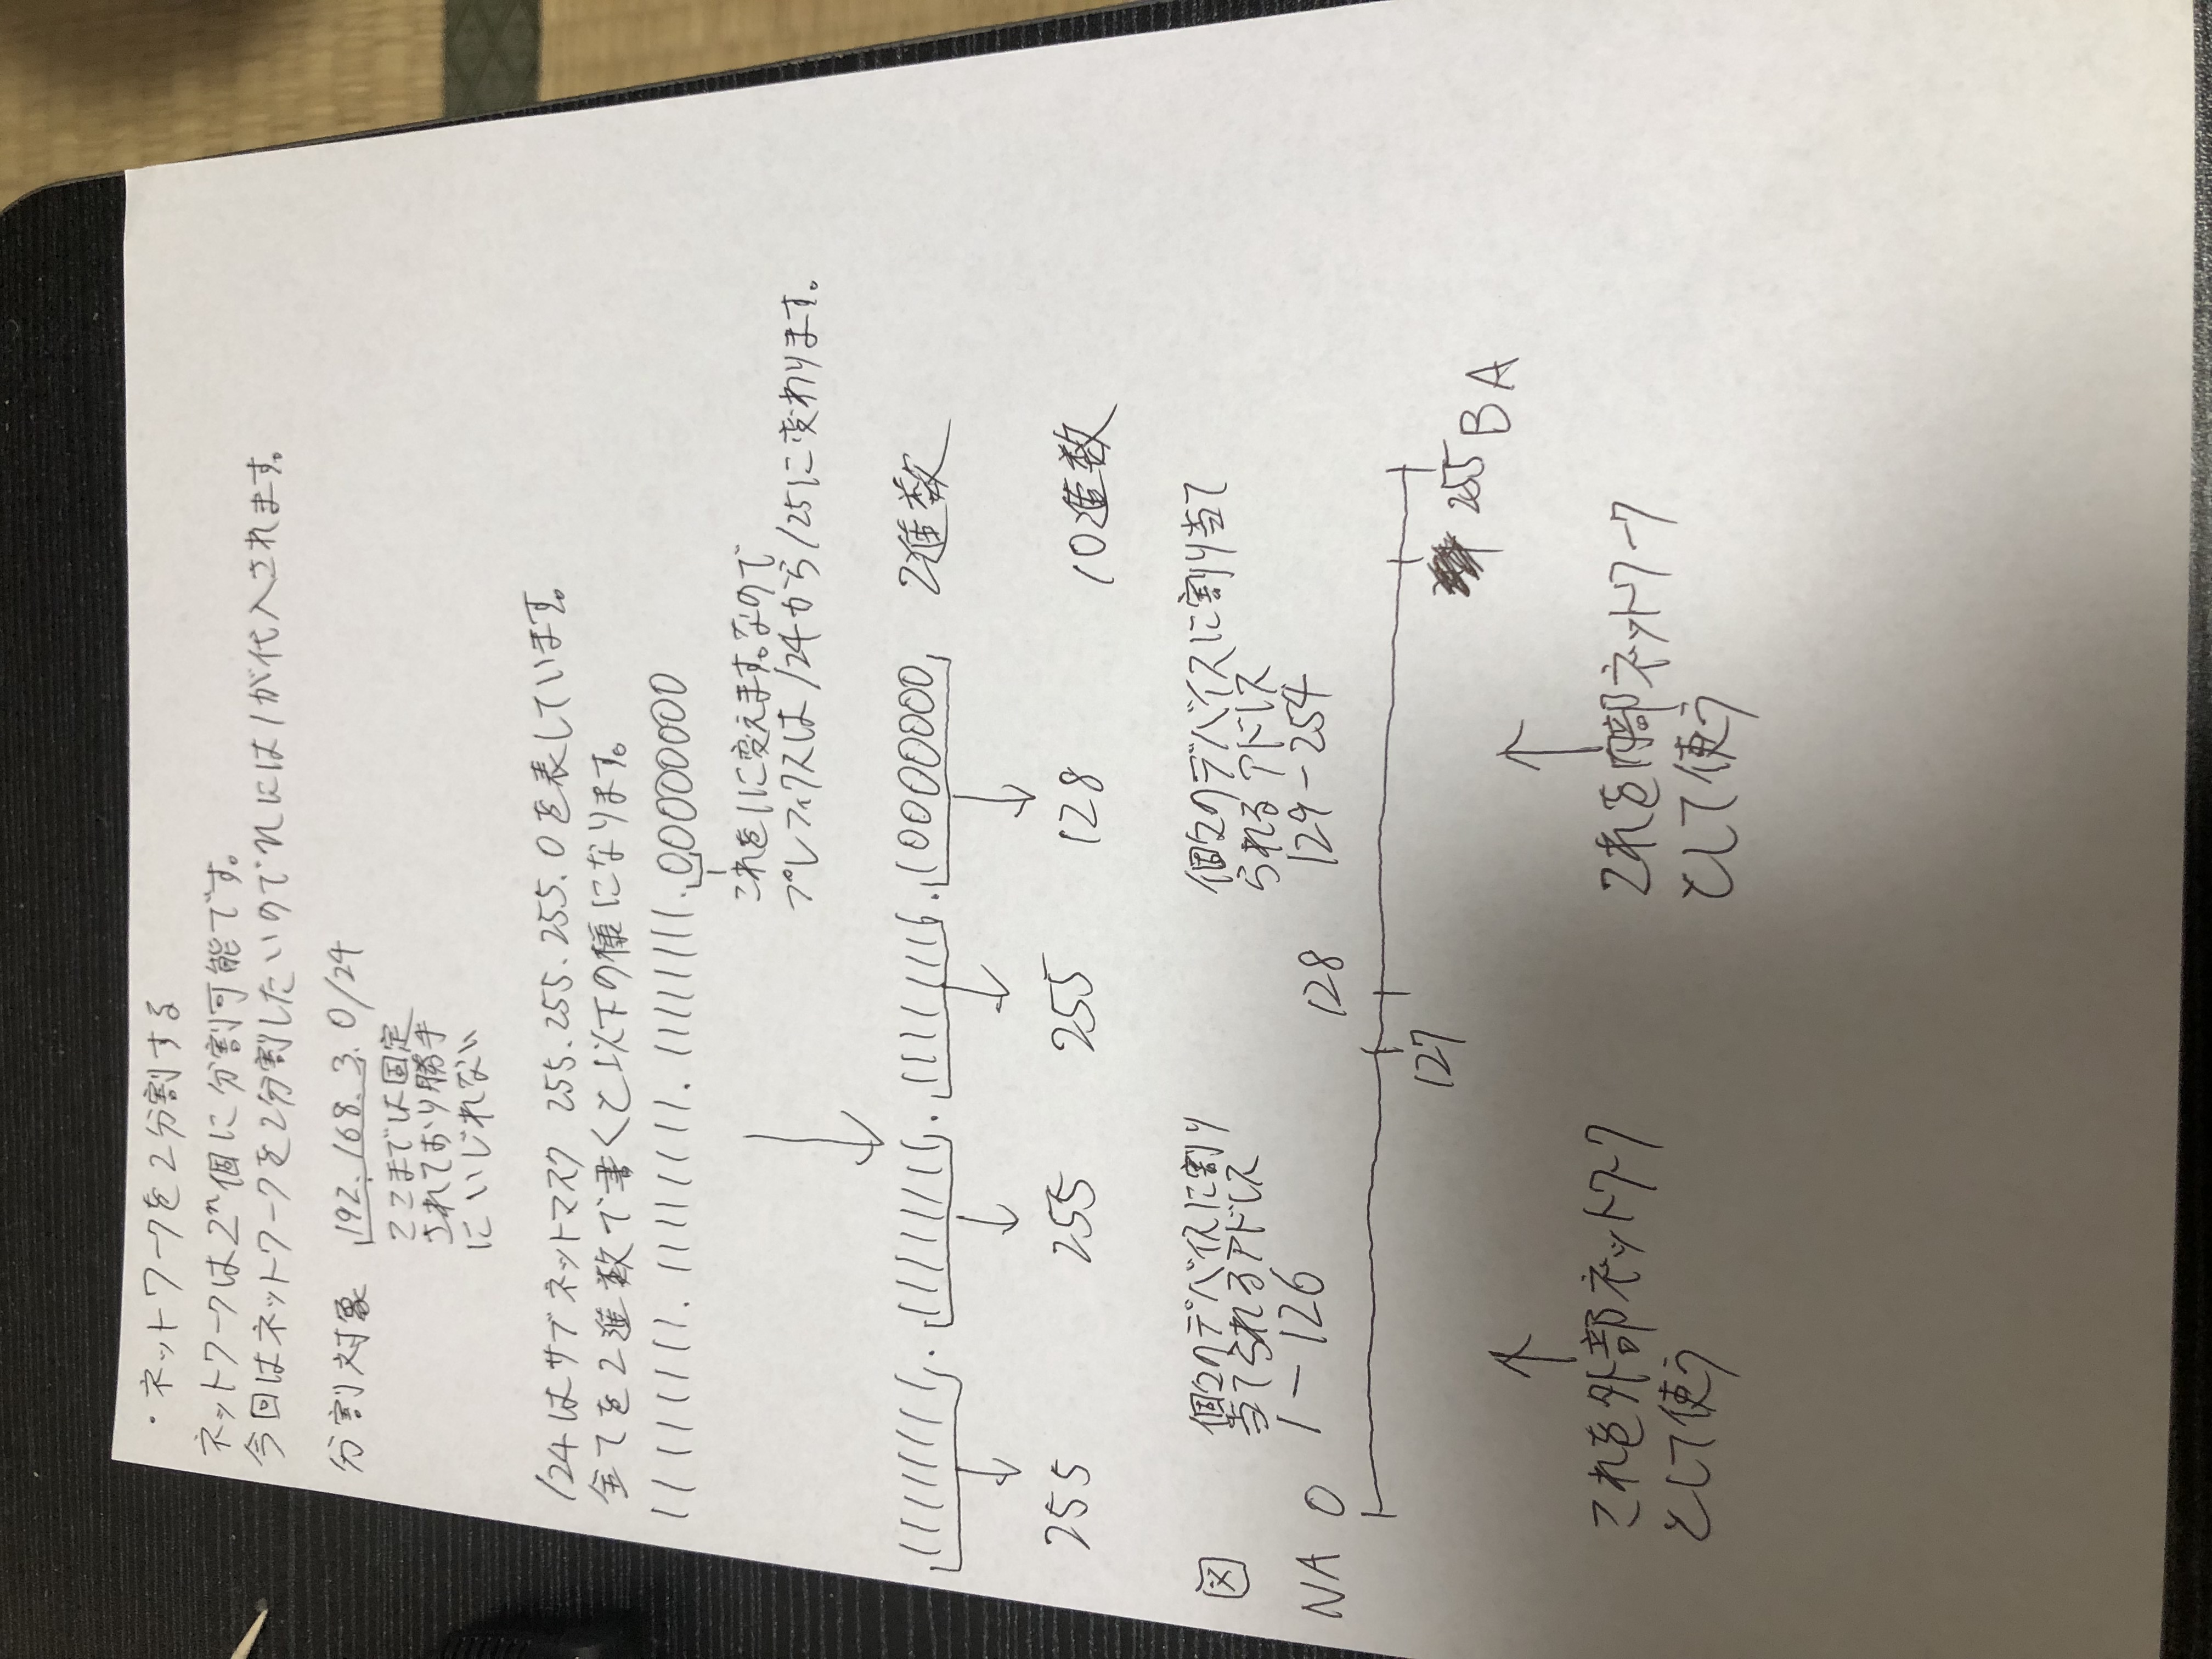 ・ネットワークを2分割する
ネットワークは2ⁿ個に分割可能です。
今回はネットワークを2分割したいのでnには1が代入されます。
分割対象 192.168.3.0/24
ここまでは固定
されており勝手
にいじれない
/24はサブネットマスク 255.255.255.0を表しています。
全てを2進数で書くと以下の様になります。
11111111.11111111.11111111.00000000
これを1に変えます。なので
プレフィクスは/24から/25に変わります。
11111111.11111111.11111111.10000000 2進数
255 255 255 128 10進数
図
個々のデバイスに割り
当てられるアドレス
1-126
個々のデバイスに割り当て
られるアドレス
129-254
NA 0 128
127 255 BA
これを外部ネットワーク
として使う
これを内部ネットワーク
として使う